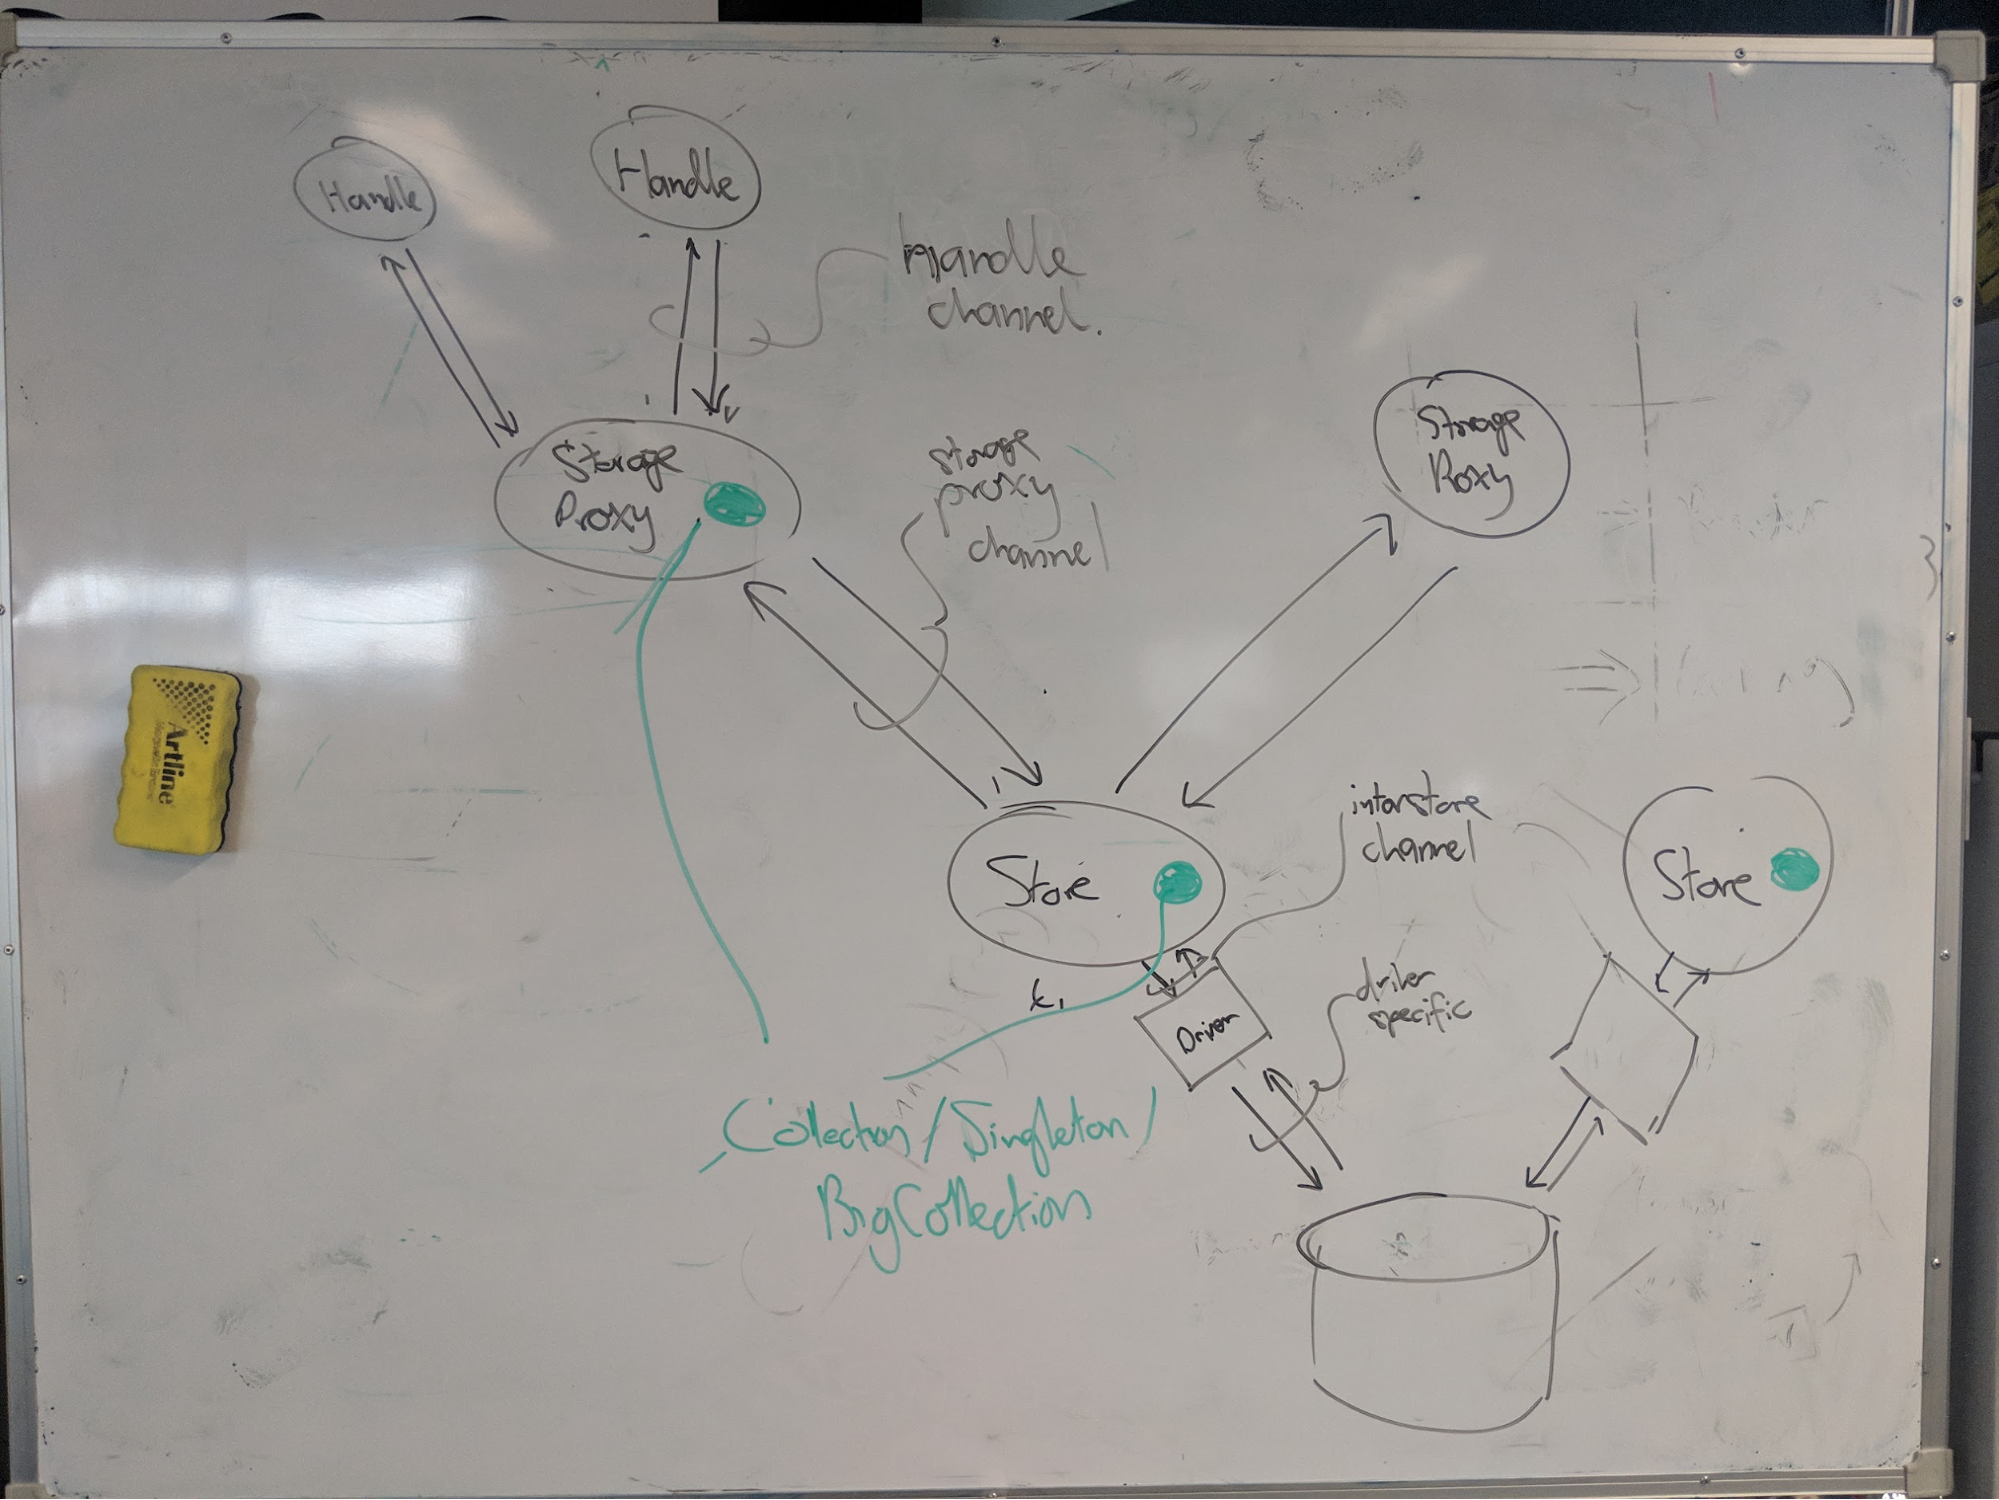 Handle
Handle
Handle
channel.
Storage
Proxy
storage
proxy
channel
Storage
Proxy
Artline
Store
interstore
channel
Store
Driver
driver
specific
Collection/Singleton/
BigCollection